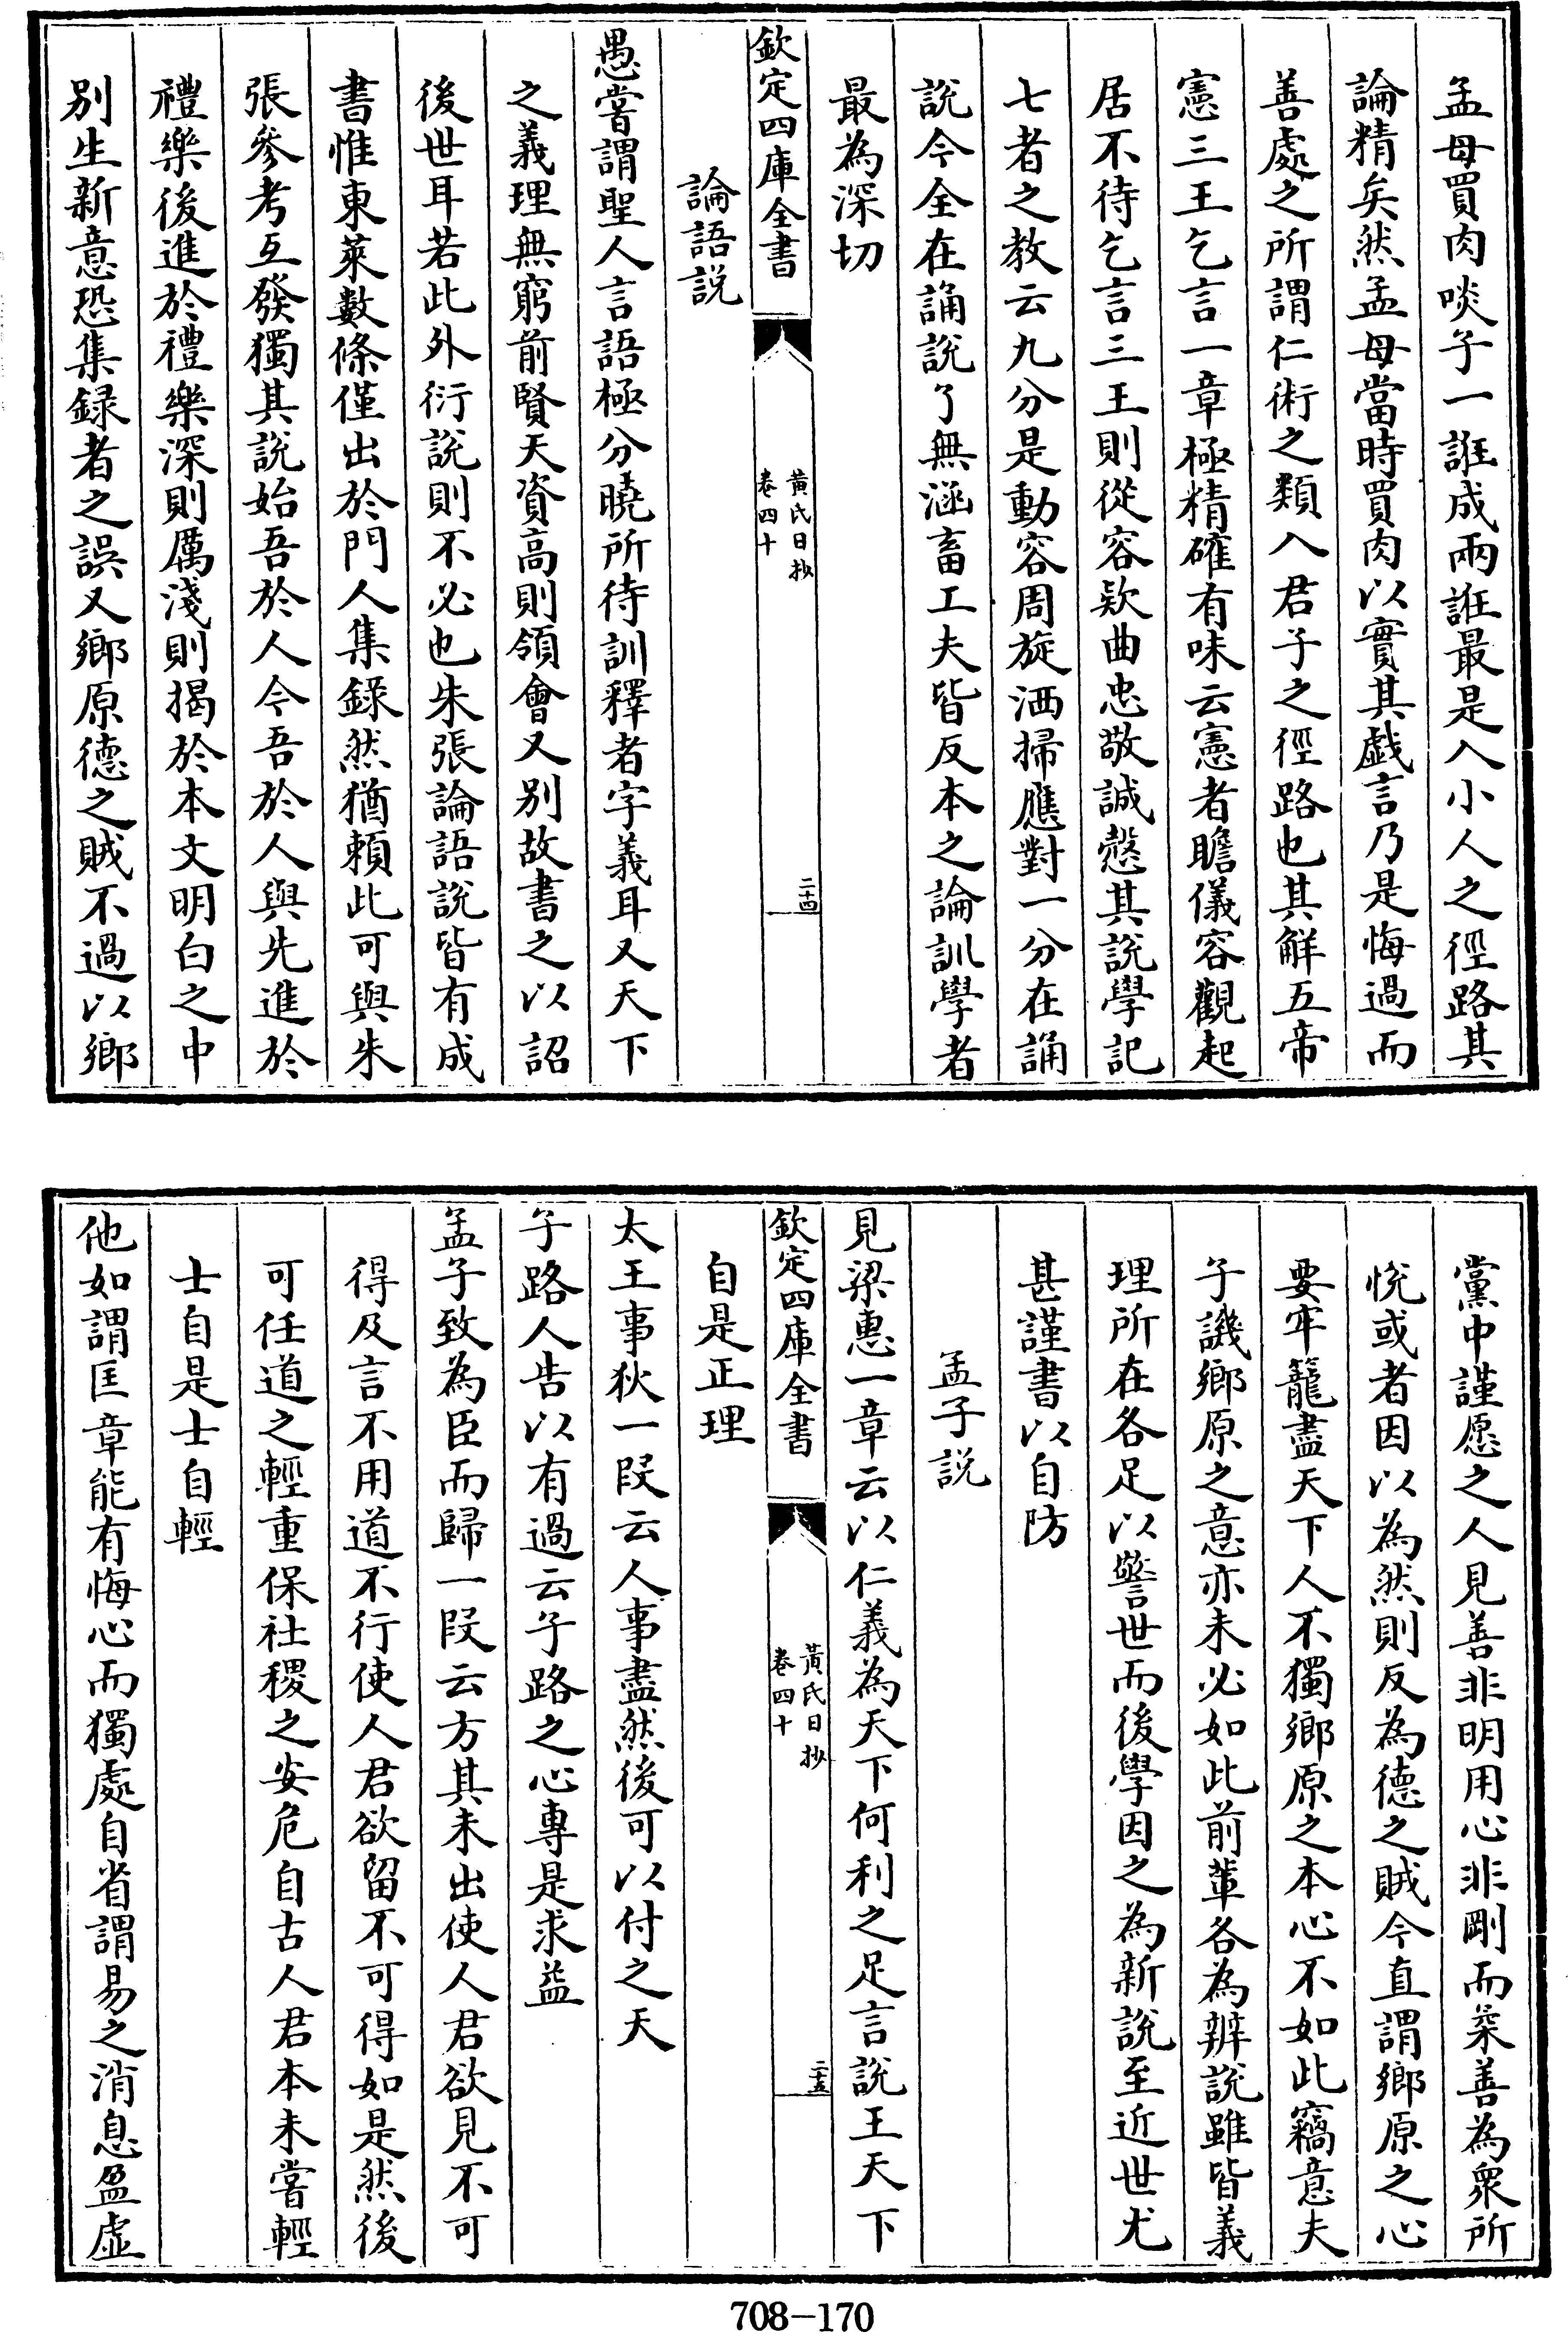 孟母買肉啖子一誑成兩誑最是入小人之徑路其
論精矣然孟母當時買肉以實其戲言乃是悔過而
善處之所謂仁術之類入君子之徑路也其解五帝
憲三王乞言一章極精確有味云憲者瞻儀容觀起
居不待乞言三王則從容欵曲忠敬誠慤其說學記
七者之教云九分是動容周旋洒掃應對一分在誦
說今全在誦說了無涵畜工夫皆反本之論訓學者
最為深切
欽定四庫全書
黃氏日抄
卷四十
二十四
論語説
愚嘗謂聖人言語極分曉所待訓釋者字義耳又天下
之義理無窮前賢天資高則領會又別故書之以詔
後世耳若此外衍說則不必也朱張論語說皆有成
書惟東萊數條僅出於門人集錄然猶賴此可與朱
張參考互發獨其説始吾於人今吾於人與先進於
禮樂後進於禮樂深則厲淺則揭於本文明白之中
別生新意恐集録者之誤又鄉原德之賊不過以鄉
黨中謹愿之人見善非明用心非剛而柔善為衆所
悅或者因以為然則反為德之賊今直謂鄉原之心
要牢籠盡天下人不獨鄉原之本心不如此竊意夫
子譏鄉原之意亦未必如此前輩各為辨説雖皆義
理所在各足以警世而後學因之為新説至近世尤
甚謹書以自防
孟子説
見梁惠一章云以仁義為天下何利之足言說王天下
欽定四庫全書
黃氏日抄
卷四十
二十五
自是正理
太王事狄一段云人事盡然後可以付之天
子路人告以有過云子路之心專是求益
孟子致為臣而歸一段云方其未出使人君欲見不可
得及言不用道不行使人君欲留不可得如是然後
可任道之輕重保社稷之安危自古人君本未嘗輕
士自是士自輕
他如謂匡章能有悔心而獨處自省謂易之消息盈虛
708-170